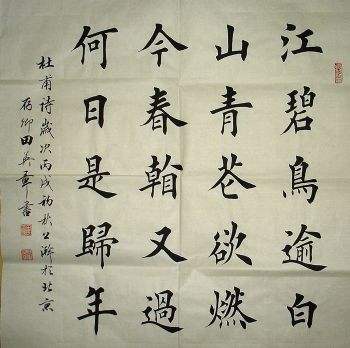 江碧鳥逾白
山青花欲燃
今春看又過
何日是歸年
杜甫詩歲次丙戌初秋上澣於北京
存卿田英章書